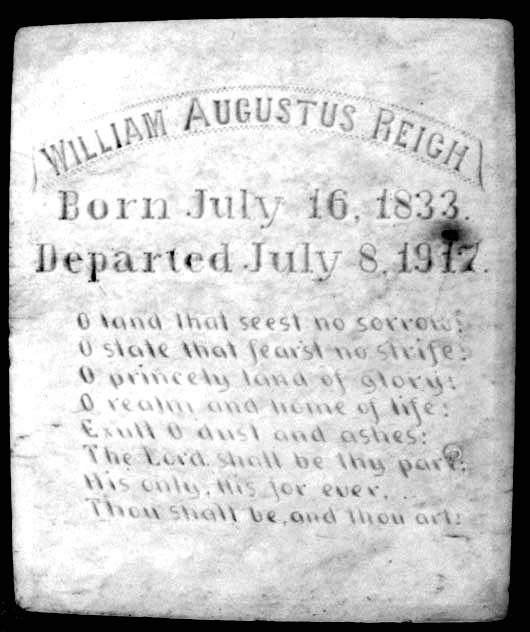 WILLIAM AUGUSTUS REIGH
Born July 16, 1833.
Departed July 8, 1917.
O land that seest no sorrow!
O state that fear'st no strife!
O princely land of glory!
O realm and home of life!
Exult O dust and ashes!
The Lord shall be thy part,
His only, His for ever,
Thou shall be, and thou art!